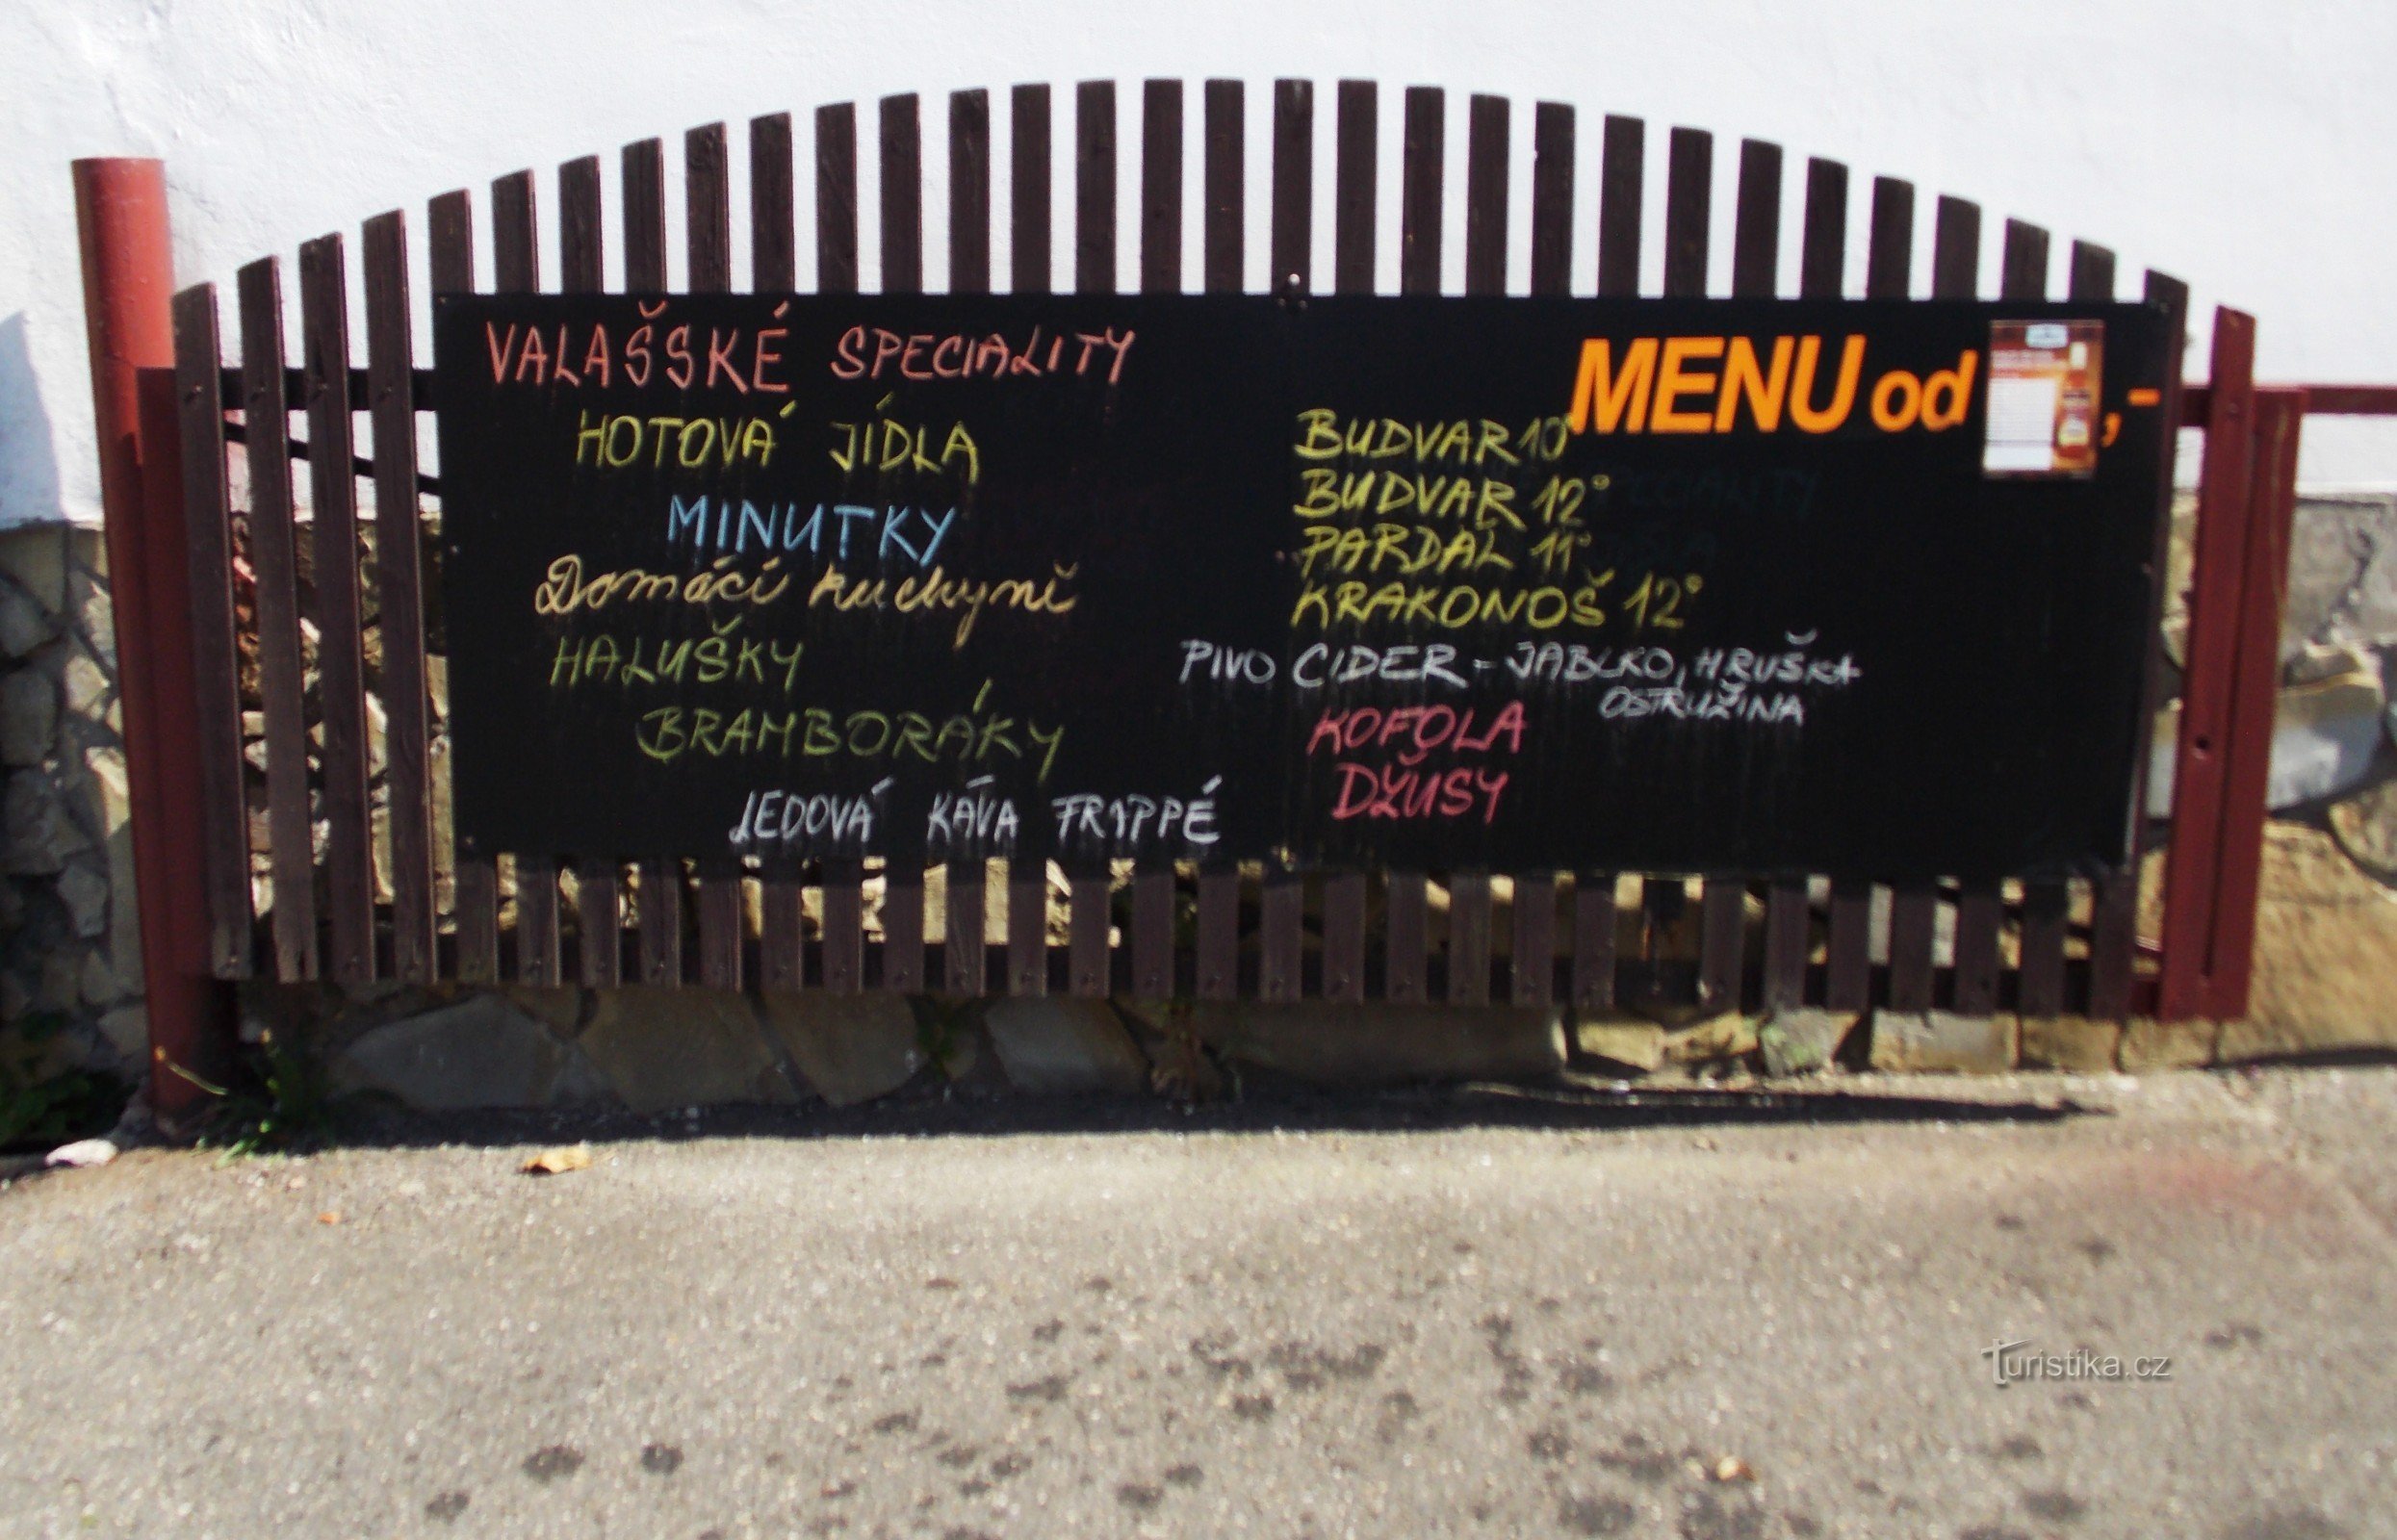 VALAŠSKÉ SPECIALITY
HOTOVÁ JÍDLA
MINUTKY
Domácí kuchyně
HALUŠKY
BRAMBORÁKY
LEDOVÁ KÁVA FRAPPÉ
MENU od ,-
BUDVAR 10°
BUDVAR 12°
PARDÁL 11°
KRAKONOŠ 12°
PIVO CIDER - JABLKO, HRUŠKA
OSTRUŽINA
KOFOLA
DŽUSY
Turistika.cz